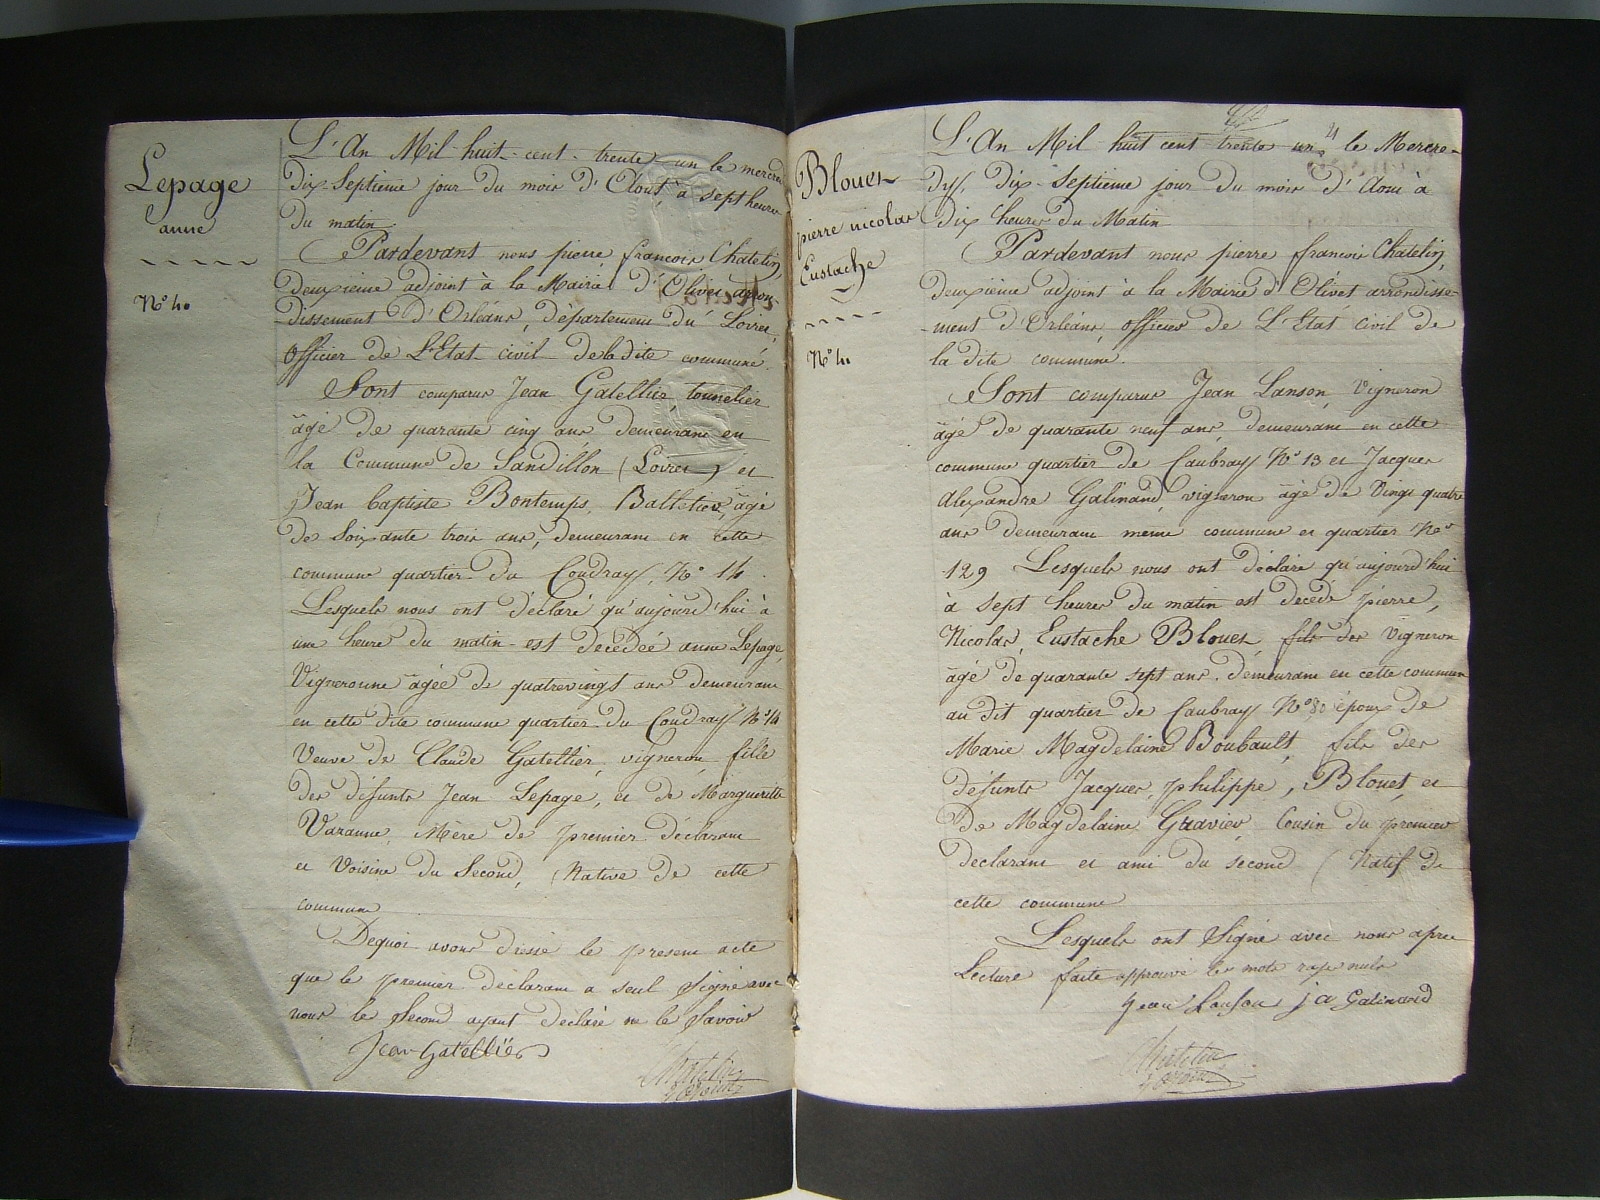 Lepage
anne
N° 40
L'An Mil huit-cent-trente-un le mercredi
Dix Septieme jour du mois d'Aout, à sept heures
du matin
Pardevant nous pierre françois Chatelin
deuxieme adjoint à la Mairie d'Olivet arron-
dissement D'Orléans, Département du Loiret,
Officier de L'Etat civil de la dite commune.
Sont comparus Jean Gatellier, tonnelier
âgé de quarante cinq ans demeurant en
la Commune de Sandillon (Loiret) et
Jean baptiste Bontemps, Balletier, âgé
de Soixante trois ans, demeurant en cette
commune quartier du Coudray, N° 14
Lesquels nous ont déclaré qu'aujourd'hui à
une heure du matin est décédée anne Lepage,
Vigneronne âgée de quatrevingts ans demeurant
en cette dite commune quartier du Coudray N° 14
Veuve de Claude Gatellier, vigneron, fille
des défunts Jean Lepage, et de Marguerite
Varanne, Mère de premier déclarant
et Voisine du Second, (Native de cette
commune
Dequoi avons dressé le present acte
que le premier déclarant a seul Signé avec
nous le Second ayant déclaré ne le Savoir
Jean Gatellier
Chatelin
adjoint
Blouet
pierre nicolas
Eustache
L'An Mil huit cent trente un, le Mercre-
dy, Dix-Septieme jour du mois d'Aout à
dix heures du Matin
Pardevant nous pierre françois Chatelin,
deuxième adjoint à la Mairie d'Olivet arrondisse-
-ment d'Orléans, officier de L'Etat civil de
la dite commune.
Sont comparus Jean Lanson, Vigneron
âgé de quarante neuf ans, demeurant en cette
commune quartier de Caubray N° 13 et Jacques
Alexandre Galinand, vigneron âgé de Vingt quatre
ans demeurant meme commune et quartier N°
129 Lesquels nous ont déclaré qu'aujourd'hui
à sept heures du matin est décédé pierre,
Nicolas, Eustache Blouet, fils des Vigneron
âgé de quarante sept ans, demeurant en cette commune
au dit quartier de Caubray N° 80 époux de
Marie Magdelaine Boubault, fils des
défunts Jacques, philippe, Blouet, et
De Magdelaine Gravier, Cousin du premier
declarant et ami du second (Natif de
cette commune
Lesquels ont Signé avec nous apres
Lecture faite approuvé les mots rayé nuls
Jean Lanson j a Galinand
Chatelin
adjoint